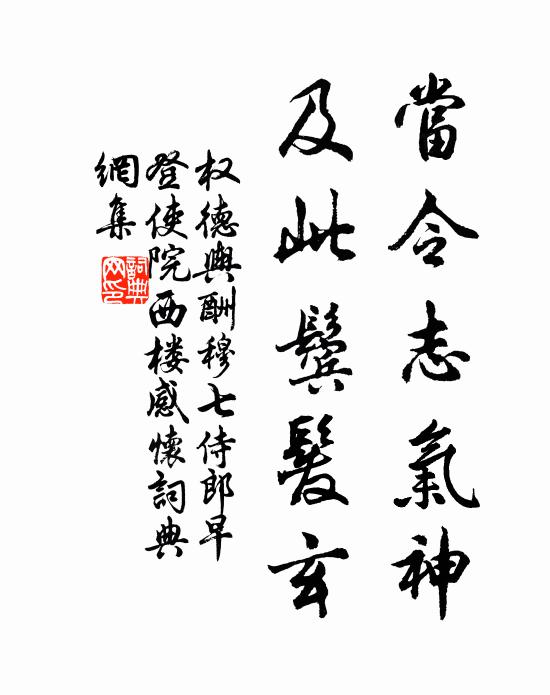 當令志氣神
及此鬢髮玄
权德輿酬穆七侍郎早
登使院西楼感懷詞典
網集
詞典
网印